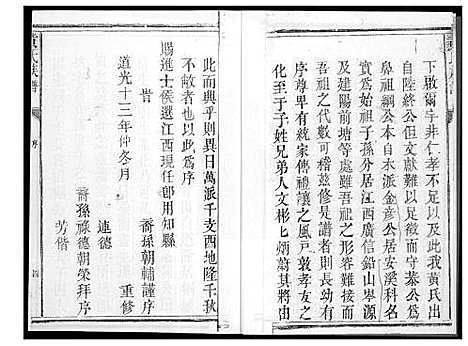 下啟爾宇非仁孝不及此我黃氏出
自陸終公但文獻難以同守泰公為
鼻祖綱公本自永派金彥公居安溪科名
實為始祖子孫分居江西廣信鉛山岑源
及建陽前塘等處雖吾祖之形容難接而
吾祖之代數可稽茲修是譜者則長幼有
序尊卑有統家傳禮讓之風戸敦孝友之
化至于子姓兄弟人文彬匕炳蔚其將由
此而興乎則異日萬派千支酉地隆千秋
不敝者也以此為序
旹
賜進士侯選江西現任卽用知縣
裔孫朝輔謹序
道光十三年仲冬月 重修
連德
裔孫祿德朝榮拜序
芳偕
黃氏族譜
序